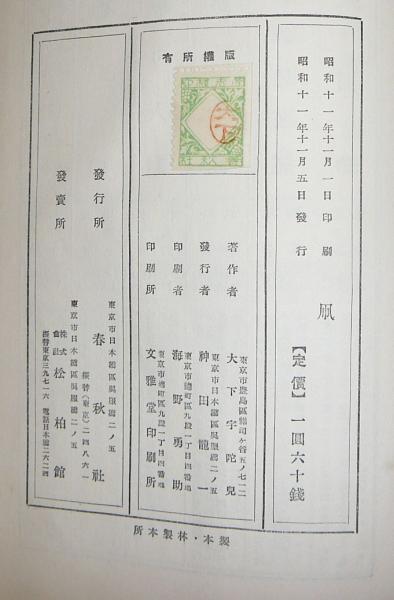 昭和十一年十一月一日印刷
昭和十一年十一月五日發行
凧
【定價】一圓六十錢
版權所有
著作者
東京市豐島區雜司ヶ谷五ノ七一二
大下宇陀兒
發行者
東京市日本橋區吳服橋二ノ五
神田龍一
印刷者
東京市麴町區九段一丁目四番地
海野勇助
印刷所
東京市麴町區九段一丁目四番地
文雅堂印刷所
發行所
東京市日本橋區吳服橋二ノ五
春秋社
振替(東京)二四八六一
發賣所
東京市日本橋區吳服橋二ノ五
株式會社松柏館
振替東京三九七一六 電話日本橋二六二四
製本・林製本所